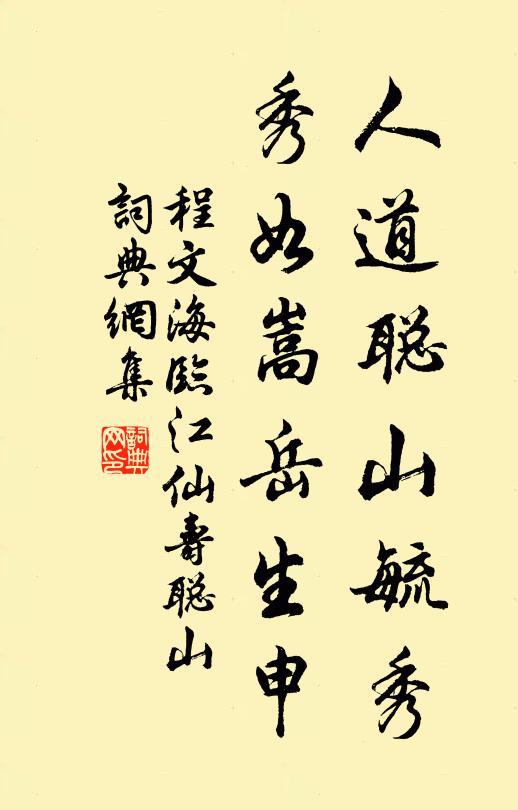 人道聪山毓秀
秀如嵩岳生申
程文海臨江仙壽聪山
詞典網集
詞典网印